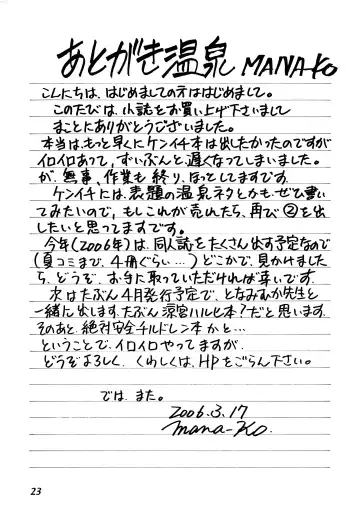 あとがき温泉 MANA-KO
こんにちは、はじめましての方ははじめまして。
このたびは、小誌をお買い上げ下さいまして
まことにありがとうございました。
本当は、もっと早くにケンイチ本は出したかったのですが
イロイロあって、ずいぶんと遅くなってしまいました。
が、無事、作業も終り、ほっとしてますです。
ケンイチには、表題の温泉ネタとかも、ぜひ書い
てみたいので、もしこれが売れたら、再び②を出
したいと思ってますです。
今年(2006年)は、同人誌をたくさん出す予定なので
(夏コミまで、4冊ぐらい…)どこかで、見かけました
ら、どうぞ、お手に取っていただければ幸いです。
次はたぶん4月発行予定で、となみむか先生と
一緒に出します。たぶん涼宮ハルヒ本?だと思います。
そのあと、絶対安全チルドレン本かと…
ということで、イロイロやってますが、
どうぞよろしく、くわしくは、HPをごらん下さい。
では、また。
2006.3.17
mana-Ko.
23